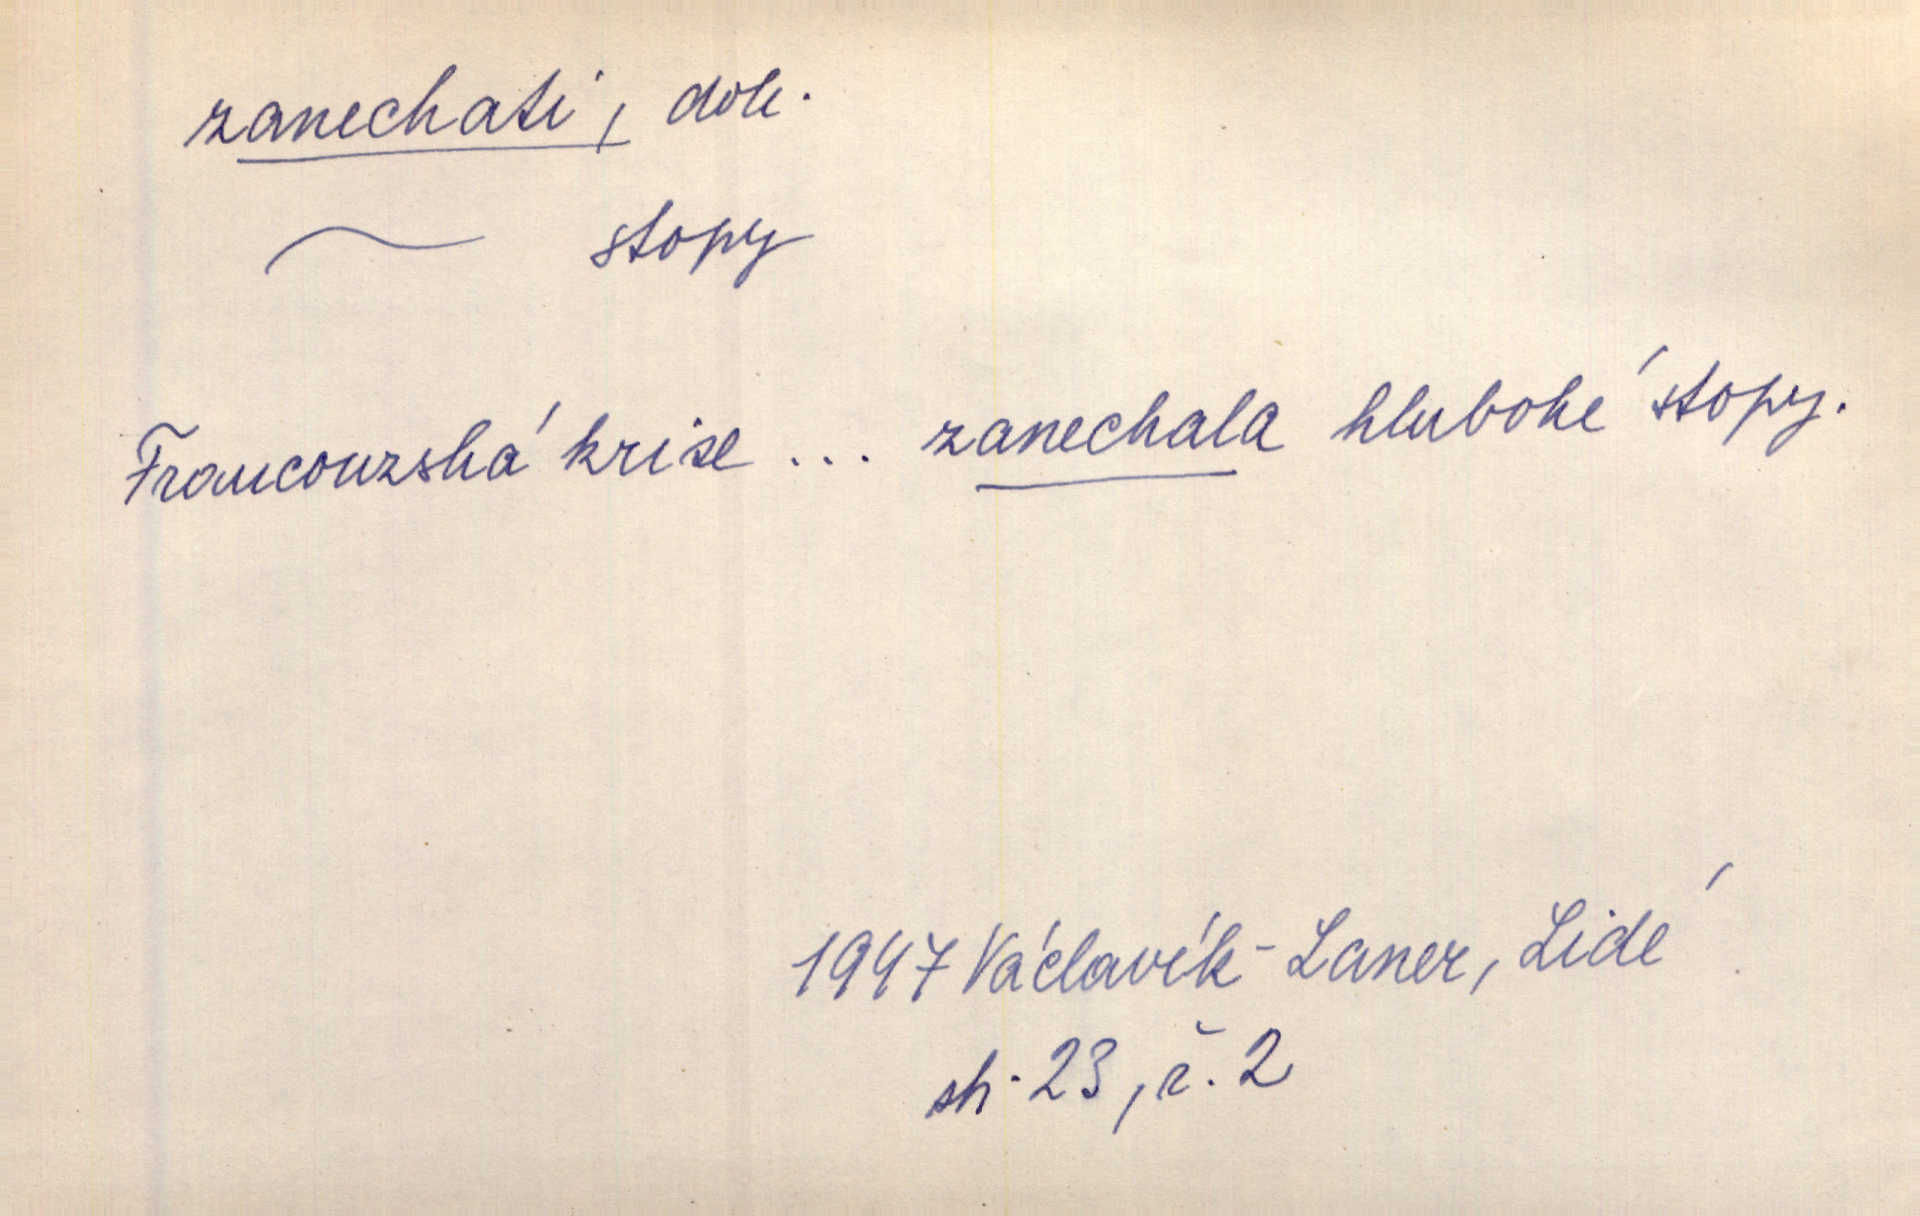 zanechati, dok.
~ stopy
Francouzská krise ... zanechala hluboké stopy.
1947 Václavík - Laner, Lidé
str. 23, č. 2